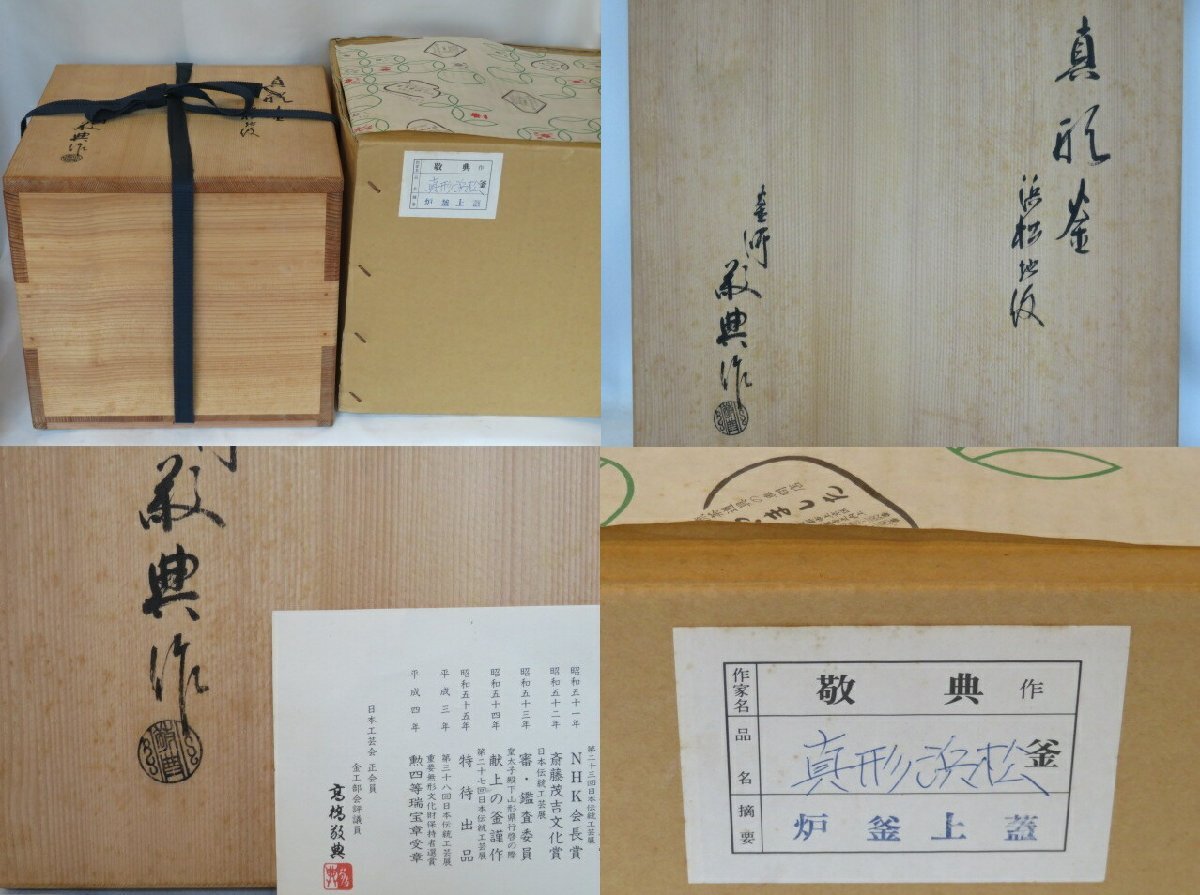 真形釜
浜松地紋
敬典作
敬典 作
真形浜松 釜
炉釜上蓋
真形釜
浜松地紋
釜師
敬典作
敬典作
第二十三回日本伝統工芸展
昭和五十一年 NHK会長賞
昭和五十二年 斎藤茂吉文化賞
日本伝統工芸展
昭和五十三年 審・鑑査委員
皇太子殿下山形県行啓の際
昭和五十四年 献上の釜謹作
第二十七回日本伝統工芸展
昭和五十五年 特待出品
第三十八回日本伝統工芸展
平成三年 重要無形文化財保持者選賞
平成四年 勲四等瑞宝章受章
日本工芸会 正会員
金工部会評議員
高橋敬典
作家名 敬典 作
品名 真形浜松 釜
摘要 炉釜上蓋